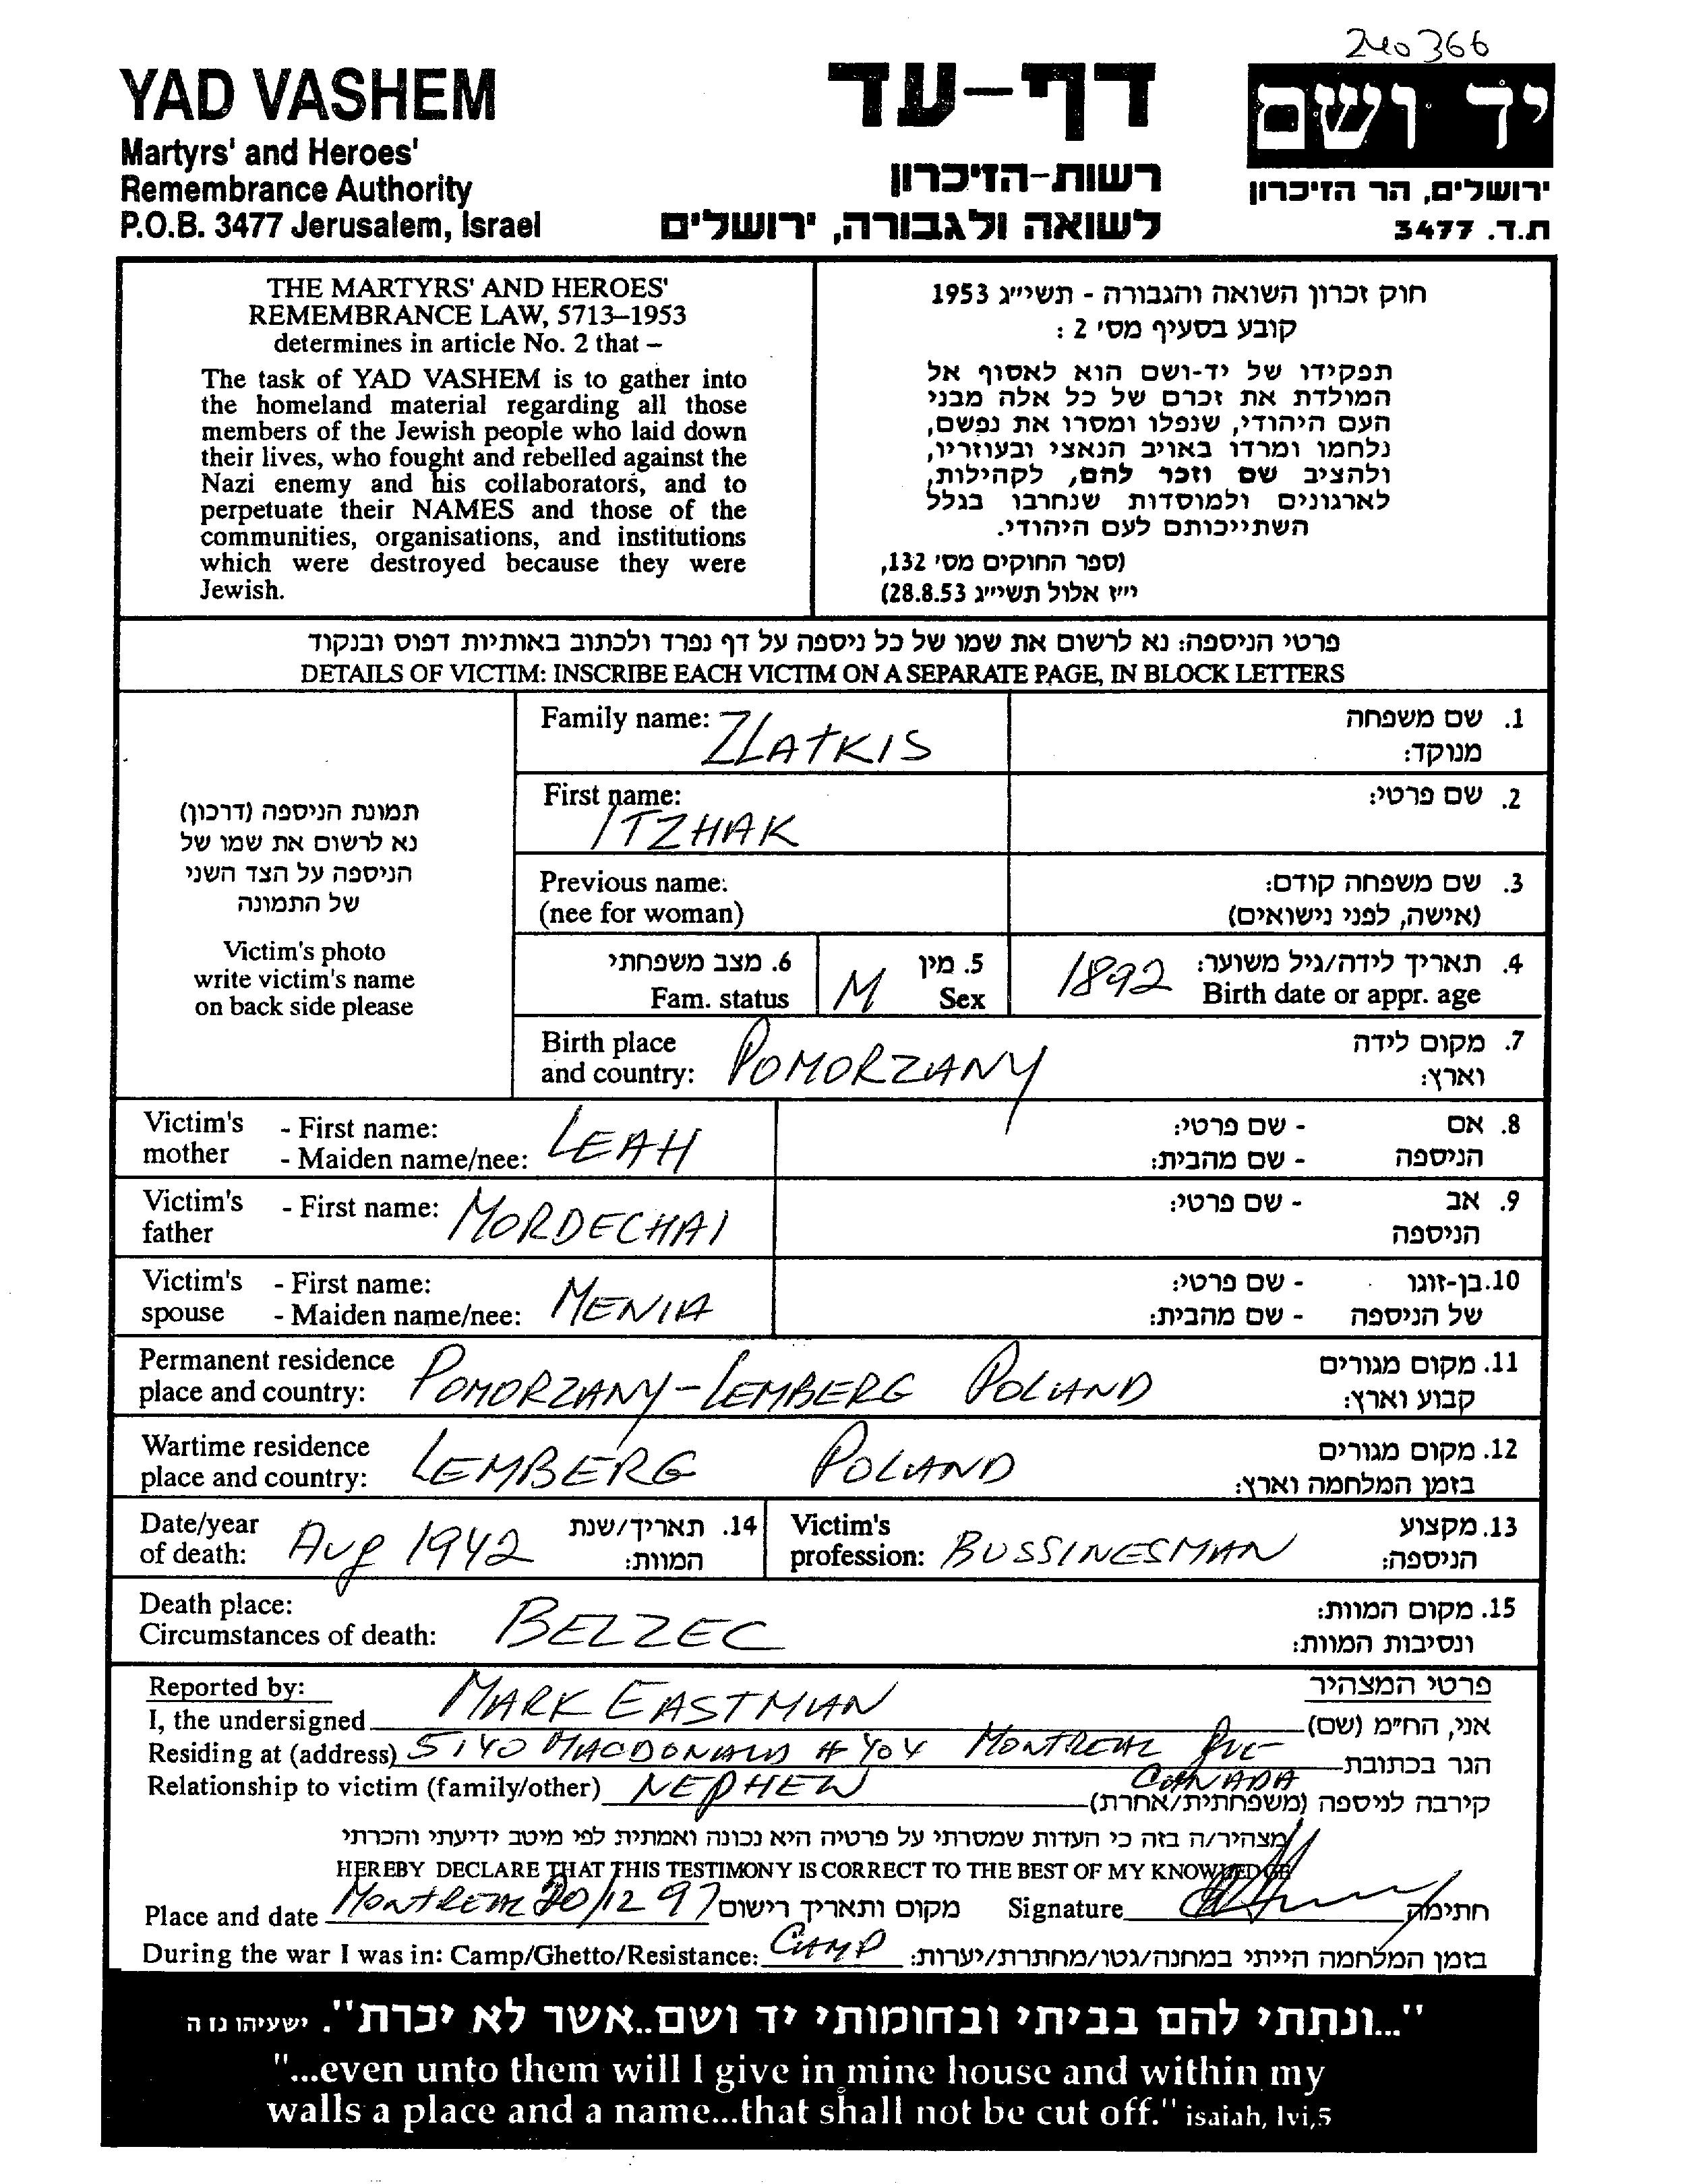 240366
YAD VASHEM
Martyrs' and Heroes'
Remembrance Authority
P.O.B. 3477 Jerusalem, Israel
דף-עד
רשות-הזיכרון
לשואה ולגבורה, ירושלים
יד ושם
ירושלים, הר הזיכרון
ת.ד. 3477
THE MARTYRS' AND HEROES'
REMEMBRANCE LAW, 5713–1953
determines in article No. 2 that –
The task of YAD VASHEM is to gather into
the homeland material regarding all those
members of the Jewish people who laid down
their lives, who fought and rebelled against the
Nazi enemy and his collaborators, and to
perpetuate their NAMES and those of the
communities, organisations, and institutions
which were destroyed because they were
Jewish.
חוק זכרון השואה והגבורה - תשי״ג 1953
קובע בסעיף מס׳ 2 :
תפקידו של יד-ושם הוא לאסוף אל
המולדת את זכרם של כל אלה מבני
העם היהודי, שנפלו ומסרו את נפשם,
נלחמו ומרדו באויב הנאצי ובעוזריו,
ולהציב שם וזכר להם, לקהילות,
לארגונים ולמוסדות שנחרבו בגלל
השתייכותם לעם היהודי.
(ספר החוקים מס׳ 132,
י״ז אלול תשי״ג 28.8.53)
פרטי הניספה: נא לרשום את שמו של כל ניספה על דף נפרד ולכתוב באותיות דפוס ובנקוד
DETAILS OF VICTIM: INSCRIBE EACH VICTIM ON A SEPARATE PAGE, IN BLOCK LETTERS
תמונת הניספה (דרכון)
נא לרשום את שמו של
הניספה על הצד השני
של התמונה
Victim's photo
write victim's name
on back side please
Family name: ZLATKIS 1. שם משפחה
מנוקד:
First name: ITZHAK 2. שם פרטי:
Previous name: 3. שם משפחה קודם:
(nee for woman) (אישה, לפני נישואים)
6. מצב משפחתי 5. מין 4. תאריך לידה/גיל משוער:
Fam. status M Sex 1892 Birth date or appr. age
Birth place 7. מקום לידה
and country: POMORZANY וארץ:
Victim's - First name: LEAH - שם פרטי: 8. אם
mother - Maiden name/nee: - שם מהבית: הניספה
Victim's - First name: MORDECHAI - שם פרטי: 9. אב
father הניספה
Victim's - First name: MENIA - שם פרטי: 10. בן-זוגו
spouse - Maiden name/nee: - שם מהבית: של הניספה
Permanent residence 11. מקום מגורים
place and country: POMORZANY-LEMBERG POLAND קבוע וארץ:
Wartime residence 12. מקום מגורים
place and country: LEMBERG POLAND בזמן המלחמה וארץ:
Date/year 14. תאריך/שנת Victim's 13. מקצוע
of death: Aug 1942 המוות: profession: BUSSINESMAN הניספה:
Death place: 15. מקום המוות:
Circumstances of death: BELZEC ונסיבות המוות:
Reported by: פרטי המצהיר
I, the undersigned MARK EASTMAN אני, הח״מ (שם)
Residing at (address) 5140 MACDONALD # 404 MONTREAL QUE CANADA הגר בכתובת
Relationship to victim (family/other) NEPHEW קירבה לניספה (משפחתית/אחרת)
מצהיר/ה בזה כי העדות שמסרתי על פרטיה היא נכונה ואמתית לפי מיטב ידיעתי והכרתי
HEREBY DECLARE THAT THIS TESTIMONY IS CORRECT TO THE BEST OF MY KNOWLEDGE
Place and date MONTREAL 20/12 97 מקום ותאריך רישום Signature חתימה
During the war I was in: Camp/Ghetto/Resistance: CAMP בזמן המלחמה הייתי במחנה/גטו/מחתרת/יערות:
"...ונתתי להם בביתי ובחומותי יד ושם..אשר לא יכרת". ישעיהו נו ה
"...even unto them will I give in mine house and within my
walls a place and a name...that shall not be cut off." isaiah, lvi,5